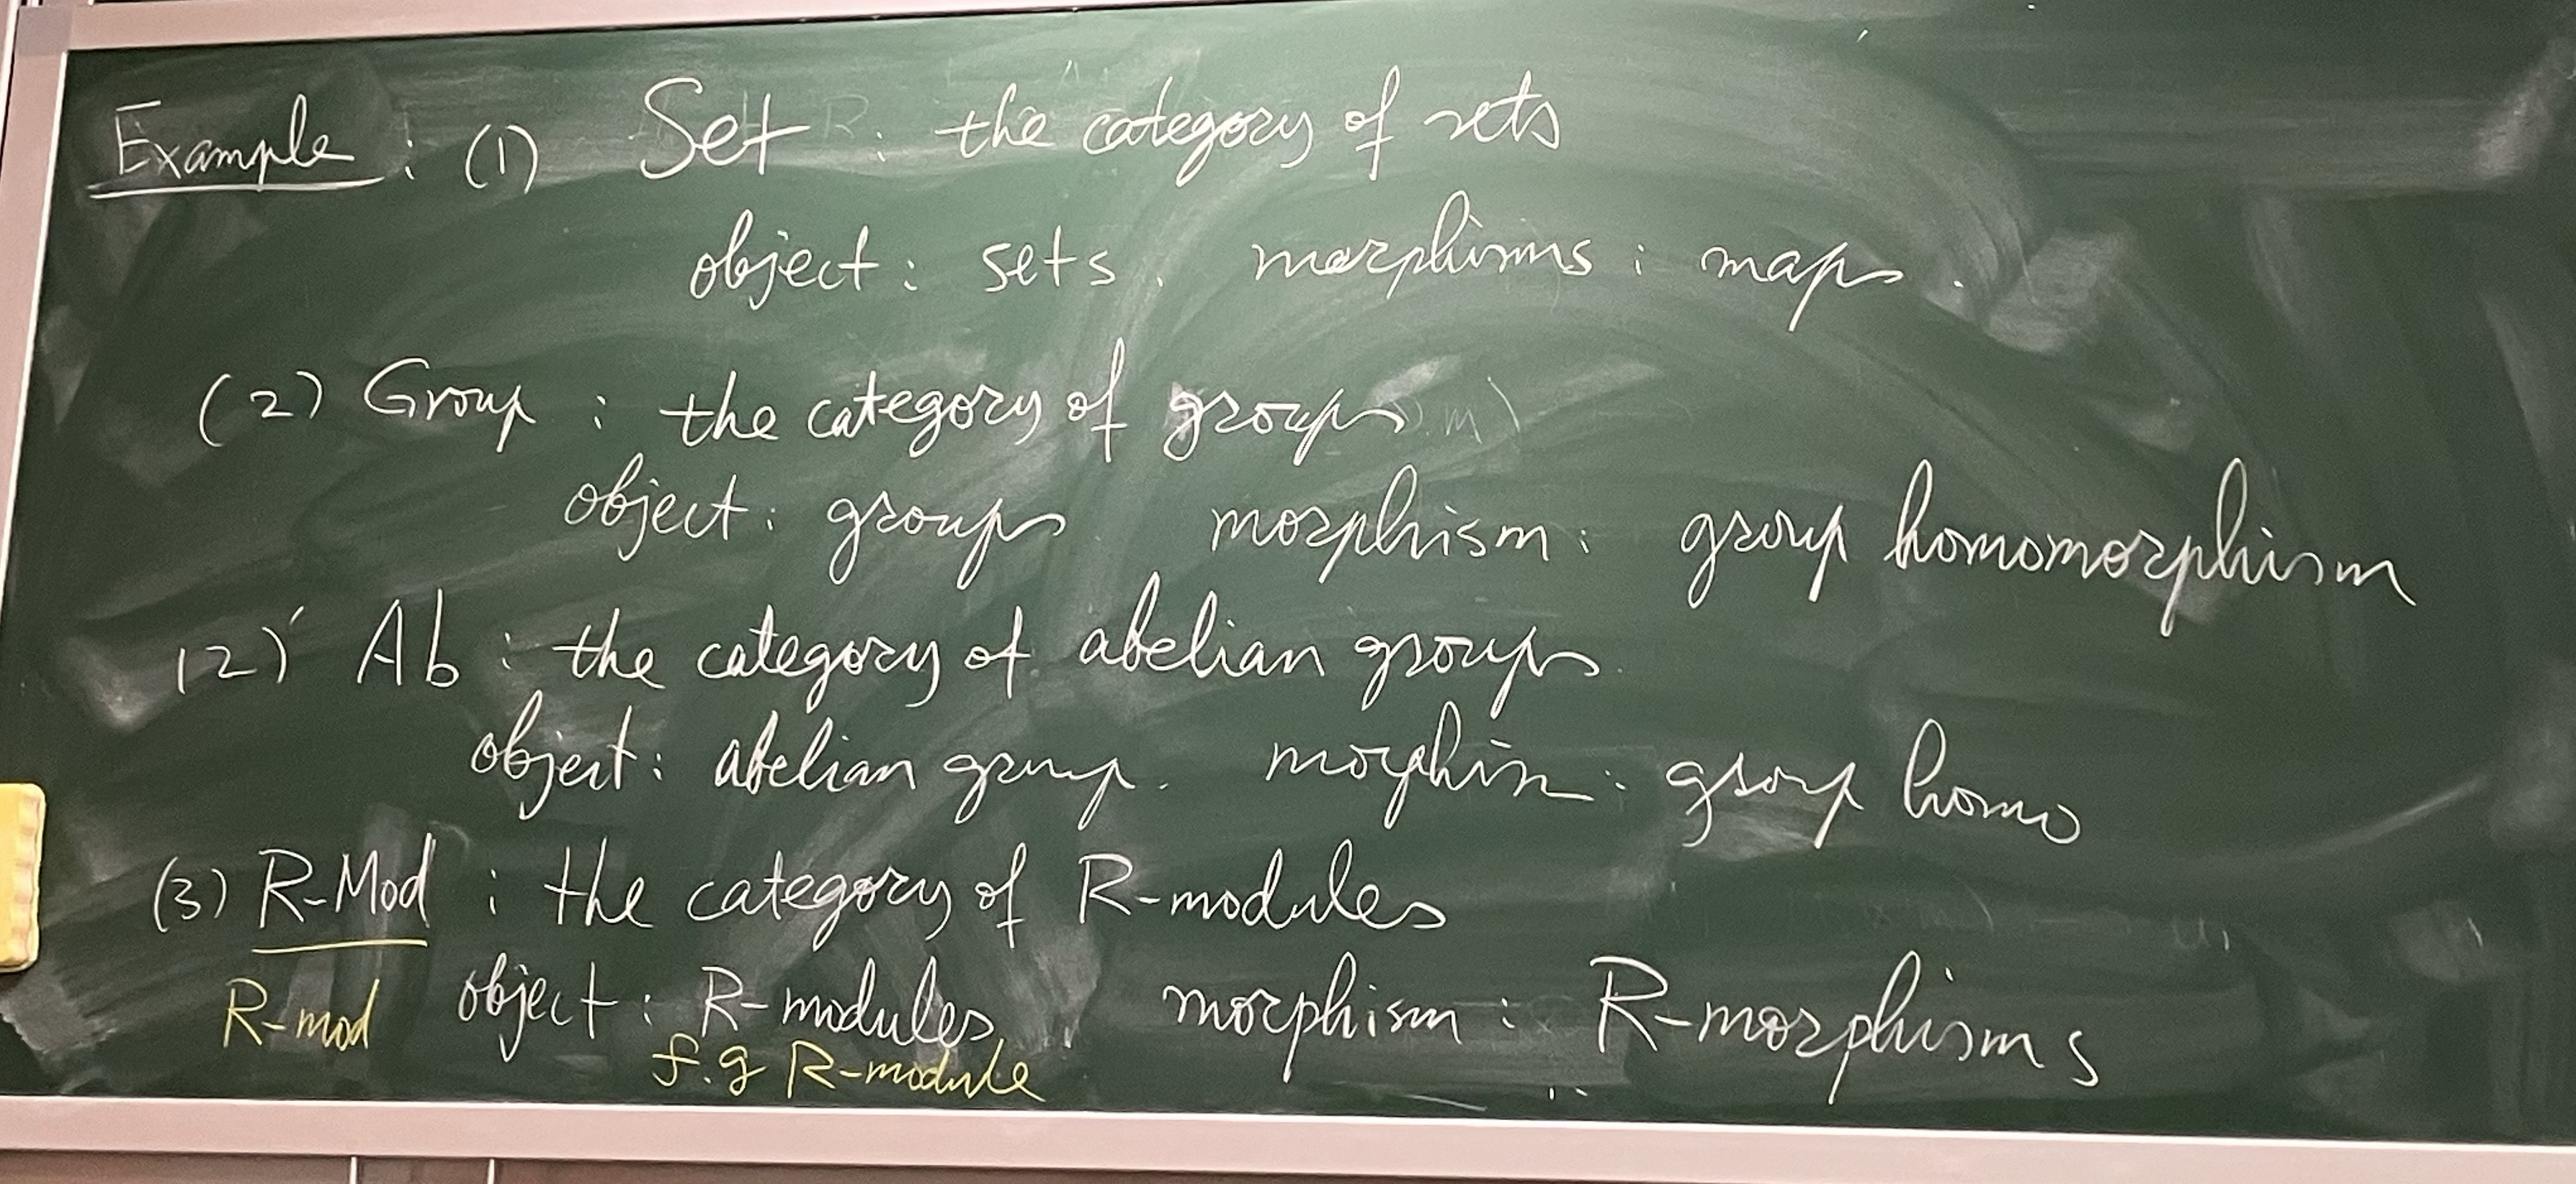 Example : (1) Set : the category of sets
object : sets. morphisms : maps.
(2) Group : the category of groups
object : groups morphism : group homomorphism
(2)' Ab : the category of abelian groups.
object : abelian group. morphism : group homo
(3) R-Mod : the category of R-modules
R-mod object : R-modules, morphism : R-morphisms
f.g R-module